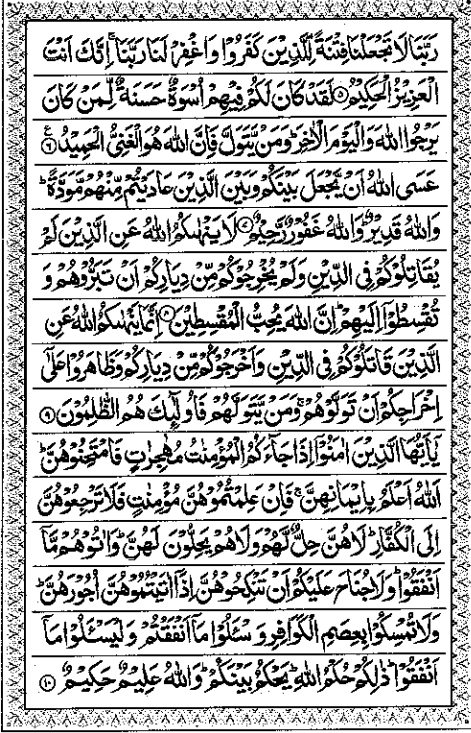 رَبَّنَا لَا تَجْعَلْنَا فِتْنَةً لِّلَّذِينَ كَفَرُوا وَاغْفِرْ لَنَا رَبَّنَا ۚ إِنَّكَ أَنْتَ
الْعَزِيزُ الْحَكِيمُ ۝٥ لَقَدْ كَانَ لَكُمْ فِيهِمْ أُسْوَةٌ حَسَنَةٌ لِّمَن كَانَ
يَرْجُوا اللّٰهَ وَالْيَوْمَ الْآخِرَ ۚ وَمَنْ يَّتَوَلَّ فَإِنَّ اللّٰهَ هُوَ الْغَنِيُّ الْحَمِيدُ ۝٦ ع
عَسَى اللّٰهُ أَنْ يَّجْعَلَ بَيْنَكُمْ وَبَيْنَ الَّذِينَ عَادَيْتُمْ مِّنْهُمْ مَّوَدَّةً ۚ
وَاللّٰهُ قَدِيرٌ ۚ وَاللّٰهُ غَفُورٌ رَّحِيمٌ ۝٧ لَا يَنْهٰىكُمُ اللّٰهُ عَنِ الَّذِينَ لَمْ
يُقَاتِلُوكُمْ فِي الدِّينِ وَلَمْ يُخْرِجُوكُمْ مِّنْ دِيَارِكُمْ أَنْ تَبَرُّوهُمْ وَ
تُقْسِطُوا إِلَيْهِمْ ۚ إِنَّ اللّٰهَ يُحِبُّ الْمُقْسِطِينَ ۝٨ إِنَّمَا يَنْهٰىكُمُ اللّٰهُ عَنِ
الَّذِينَ قَاتَلُوكُمْ فِي الدِّينِ وَأَخْرَجُوكُمْ مِّنْ دِيَارِكُمْ وَظَاهَرُوا عَلٰى
إِخْرَاجِكُمْ أَنْ تَوَلَّوْهُمْ ۚ وَمَنْ يَّتَوَلَّهُمْ فَأُولٰئِكَ هُمُ الظّٰلِمُونَ ۝٩
يٰأَيُّهَا الَّذِينَ اٰمَنُوا إِذَا جَاءَكُمُ الْمُؤْمِنٰتُ مُهٰجِرٰتٍ فَامْتَحِنُوهُنَّ ۚ
اللّٰهُ أَعْلَمُ بِإِيمَانِهِنَّ ۚ فَإِنْ عَلِمْتُمُوهُنَّ مُؤْمِنٰتٍ فَلَا تَرْجِعُوهُنَّ
إِلَى الْكُفَّارِ ۚ لَا هُنَّ حِلٌّ لَّهُمْ وَلَا هُمْ يَحِلُّونَ لَهُنَّ ۚ وَاٰتُوهُمْ مَّا
أَنْفَقُوا ۚ وَلَا جُنَاحَ عَلَيْكُمْ أَنْ تَنْكِحُوهُنَّ إِذَا اٰتَيْتُمُوهُنَّ أُجُورَهُنَّ ۚ
وَلَا تُمْسِكُوا بِعِصَمِ الْكَوَافِرِ وَسْئَلُوا مَا أَنْفَقْتُمْ وَلْيَسْئَلُوا مَا
أَنْفَقُوا ۚ ذٰلِكُمْ حُكْمُ اللّٰهِ ۚ يَحْكُمُ بَيْنَكُمْ ۚ وَاللّٰهُ عَلِيمٌ حَكِيمٌ ۝١٠